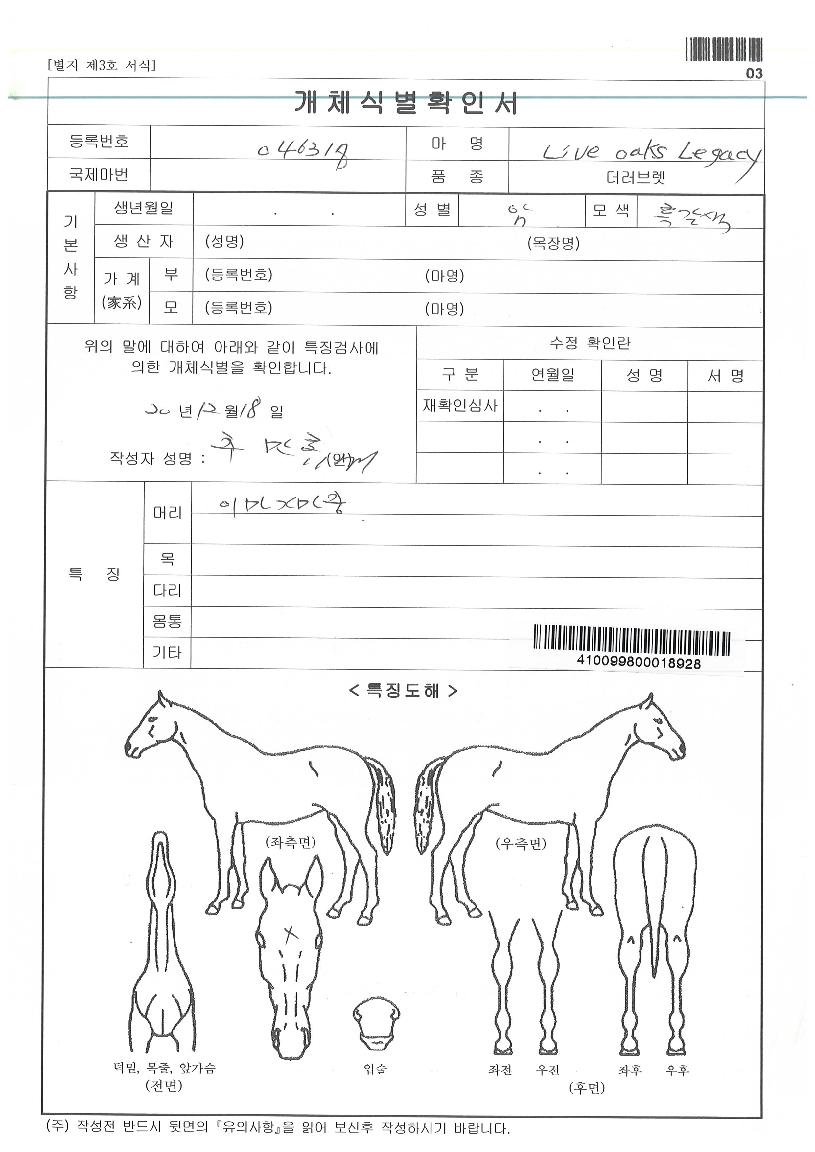 [별지 제3호 서식]
03
개체식별확인서
등록번호 046318 마 명 Live oaks Legacy
국제마번 품 종 더러브렛
기본사항
생년월일 . . 성 별 암 모 색 흑갈색
생 산 자 (성명) (목장명)
가 계 (家系) 부 (등록번호) (마명)
모 (등록번호) (마명)
위의 말에 대하여 아래와 같이 특징검사에
의한 개체식별을 확인합니다.
20 년 12 월 18 일
작성자 성명 :
수정 확인란
구 분 연월일 성 명 서 명
재확인심사 . .
. .
. .
특 징
머리
목
다리
몸통
기타
410099800018928
< 특징도해 >
(좌측면) (우측면)
턱밑, 목줄, 앞가슴 입술 좌전 우전 좌후 우후
(전면) (후면)
(주) 작성전 반드시 뒷면의 『유의사항』을 읽어 보신후 작성하시기 바랍니다.